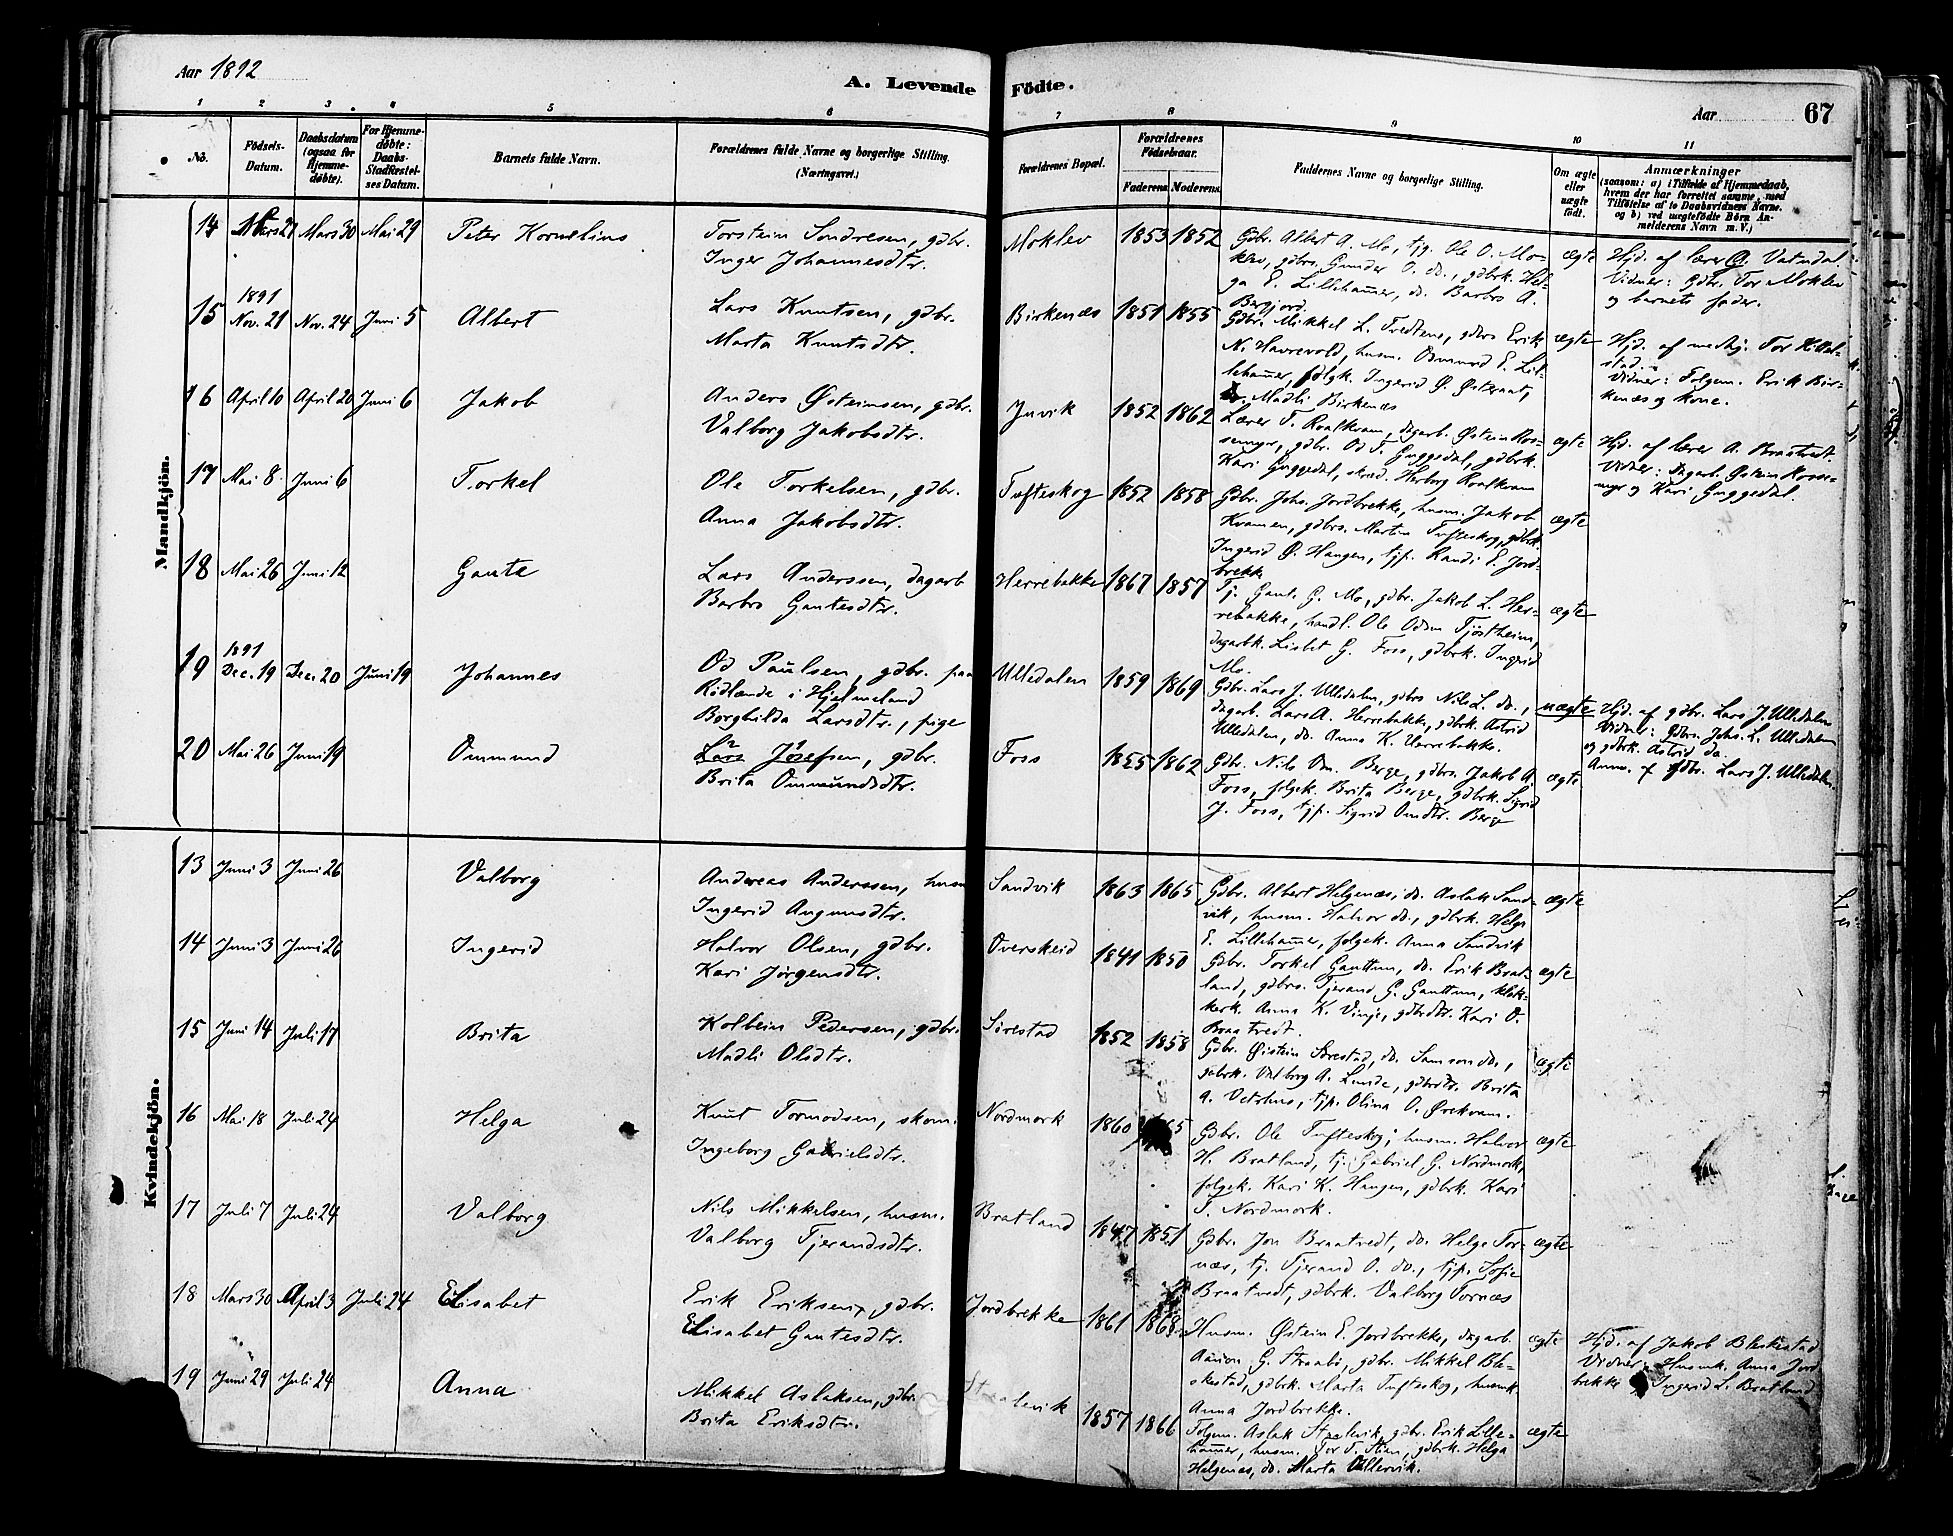 Aar 1892
A. Levende Födte.
Aar 67
1 2 3 4 5 6 7 8 9 10 11
No.
Födsels-Datum.
Daabsdatum (ogsaa for Hjemme-döbte).
For Hjemme-döbte: Daabs-Stadfæstel-ses Datum.
Barnets fulde Navn.
Forældrenes fulde Navne og borgerlige Stilling. (Næringsvei.)
Forældrenes Bopæl.
Forældrenes Födselsaar.
Faderens. Moderens.
Fadderenes Navne og borgerlige Stilling.
Om ægte eller uægte födt.
Anmærkninger
(saasom: a) i Tilfælde af Hjemmedaab, hvem der har forrettet samme, med Tilföielse af to Daabsvidners Navne, og b) ved uegtefödte Börn An-melderens Navn m. V.)
Mandkjön.
14 Mars 27 Mars 30 Mai 29 Peter Kornelius
Torstein Sondresen, gdbr.
Inger Johannesdtr.
Moklev 1853 1852
Gdbr. Albert A. Mo, tjg. Ole O. Mo-
klev, gdbrs. Gunder O. do., gdbrk. Hel-
ga E. Lillehammer, do. Barbro A.
Bergjord.
ægte
Hjd. af lærer Ø. Vatndal.
Vidner: Gdbr. Tor Moklev
og barnets fader.
15 1891 Nov. 21 Nov. 24 Juni 5 Albert
Lars Knutsen, gdbr.
Marta Knutsdtr.
Birkenæs 1851 1855
Gdbr. Mikkel L. Tvedtene, gdbrs Erik
N. Havrevold, husm. Ommund E. Lil-
lehammer, folgk. Ingerid Ø. Østeraat,
do. Madli Birkenæs
ægte
Vidner: Folgem. Erik Bir-
kenæs og kone.
16 April 10 April 20 Juni 6 Jakob
Anders Østeinsen, gdbr.
Valborg Jakobsdtr.
Juvik 1852 1862
Lærer T. Roalkvam, dagarb. Østein Ros-
semyr, gdbr. Od T. Guggedal, gdbrk.
Kari Guggedal, skræd. Herborg Roalkvam
ægte
Hjd. af lærer A. Braatvedt.
Vidner: Dagarb. Østein Rosse-
myr og Kari Guggedal.
17 Mai 8. Juni 6 Torkel
Ole Torkelsen, gdbr.
Anna Jakobsdtr.
Tufteskog 1852 1858
Gdbr. Johs. Jordbrekke, husm. Jakob
Kvamen, gdbrs. Martin Tufteskog, gdbrk.
Ingerid Ø. Haugen, tjp. Randi E. Jord-
brekke
ægte
18 Mai 26 Juni 12 Gaute
Lars Anderssen, dagarb
Barbro Gautesdtr.
Herrebakke 1867 1857
Tj. Gaut. G. Mo, gdbr. Jakob L. Her-
rebakke, handl. Ole Odsen Tjøstheim,
dagarbk. Lisbet G. Foss, gdbrk. Ingrid
Mo.
ægte
19 1891 Dec. 19 Dec. 20 Juni 19 Johannes
Od Paulsen, gdbr. paa
Rødlende i Hjelmeland
Borghilda Larsdtr., pige
Ulledalen 1859 1869
Gdbr. Lars J. Ulledalen, gdbrs Nils L. do.,
dagarb. Lars A. Herrebakke, gdbrk. Astrid
Ulledalen, do. Anna K. Herrebakke.
uægte
Hjd. af gdbr. Lars J. Ulledalen
Vidner: gdbrs. Johs. L. Ulledalen
og gdbrk. Astrid do.
Anm. af gdbr. Lars J. Ulledalen.
20 Mai 26 Juni 19 Ommund
Lars Josefsen, gdbr.
Brita Ommundsdtr.
Foss 1855 1862
Gdbr. Nils Om. Berge, gdbrs. Jakob A.
Foss, folgek. Brita Berge, gdbrk. Sigrid
J. Foss, tjp. Sigrid Omdtr. Berge
ægte
Kvindekjön.
13 Juni 3 Juni 26 Valborg
Andreas Anderssen, husm
Ingerid Aagmusdtr.
Sandvik 1863 1865
Gdbr. Albert Helgenæs, do. Aslak Sand-
vik, husm. Halvor do., gdbrk. Helga
E. Lillehammer, folgek. Anna Sandvik
ægte
14 Juni 3 Juni 26 Ingerid
Halvor Olsen, gdbr.
Kari Jørgensdtr.
Overskeid 1841 1850
Gdbr. Torkel Gauttun, do. Erik Brat-
land, gdbrs. Tjerand G. Gauttun, klok-
kerk. Anna K. Vinje, gdbrdtr. Kari O.
Braatvedt.
ægte
15 Juni 14 Juli 17 Brita
Kolbein Pedersen, gdbr.
Madli Olsdtr.
Sørestad 1852 1858
Gdbr. Øistein Sørestad, do. Samson do.,
gdbrk. Valborg A. Lunde, gdbrdtr. Brita
A. Vetrhus, tjp. Olina O. Ørekvam.
ægte
16 Mai 18 Juli 24 Helga
Knut Tormodsen, skom.
Ingeborg Gabrielsdtr.
Nordmork 1860
Gdbr. Ole Tufteskog, husm. Halvor
H. Bratland, tj. Gabriel G. Nordmork,
folgek. Kari K. Haugen, gdbrk. Kari
T. Nordmork.
ægte
17 Juli 7 Juli 24 Valborg
Nils Mikkelsen, husm.
Valborg Tjerandsdtr.
Bratland 1847 1851
Gdbr. Jon Braatvedt, do. Helge Tor-
næs, tj. Tjerand O. do., tjp. Sofie
Braatvedt, gdbrk. Valborg Tornæs
ægte
18 Mars 30 April 3 Juli 24 Elisabet
Erik Eriksen, gdbr.
Elisabet Gautesdtr.
Jordbrekke 1861 1868
Husm. Østein E. Jordbrekke, dagarb.
Aamon G. Straabø, gdbr. Mikkel Ble-
skestad, gdbrk. Marta Tufteskog, husmk.
Anna Jordbrekke.
ægte
Hjd. af Jakob Bleskestad
Vidner: Husmk. Anna Jord
brekke Ingerid L. Bratland
19 Juni 29 Juli 24 Anna
Mikkel Aslaksen, gdbr.
Brita Eriksdtr.
1857 1866
Folgem. Aslak Straalevik, gdbr. Erik Lille-
hammer, husm. Tor T. Stien, gdbrk. Helga
Helgenæs, do. Marta Ullervik.
ægte